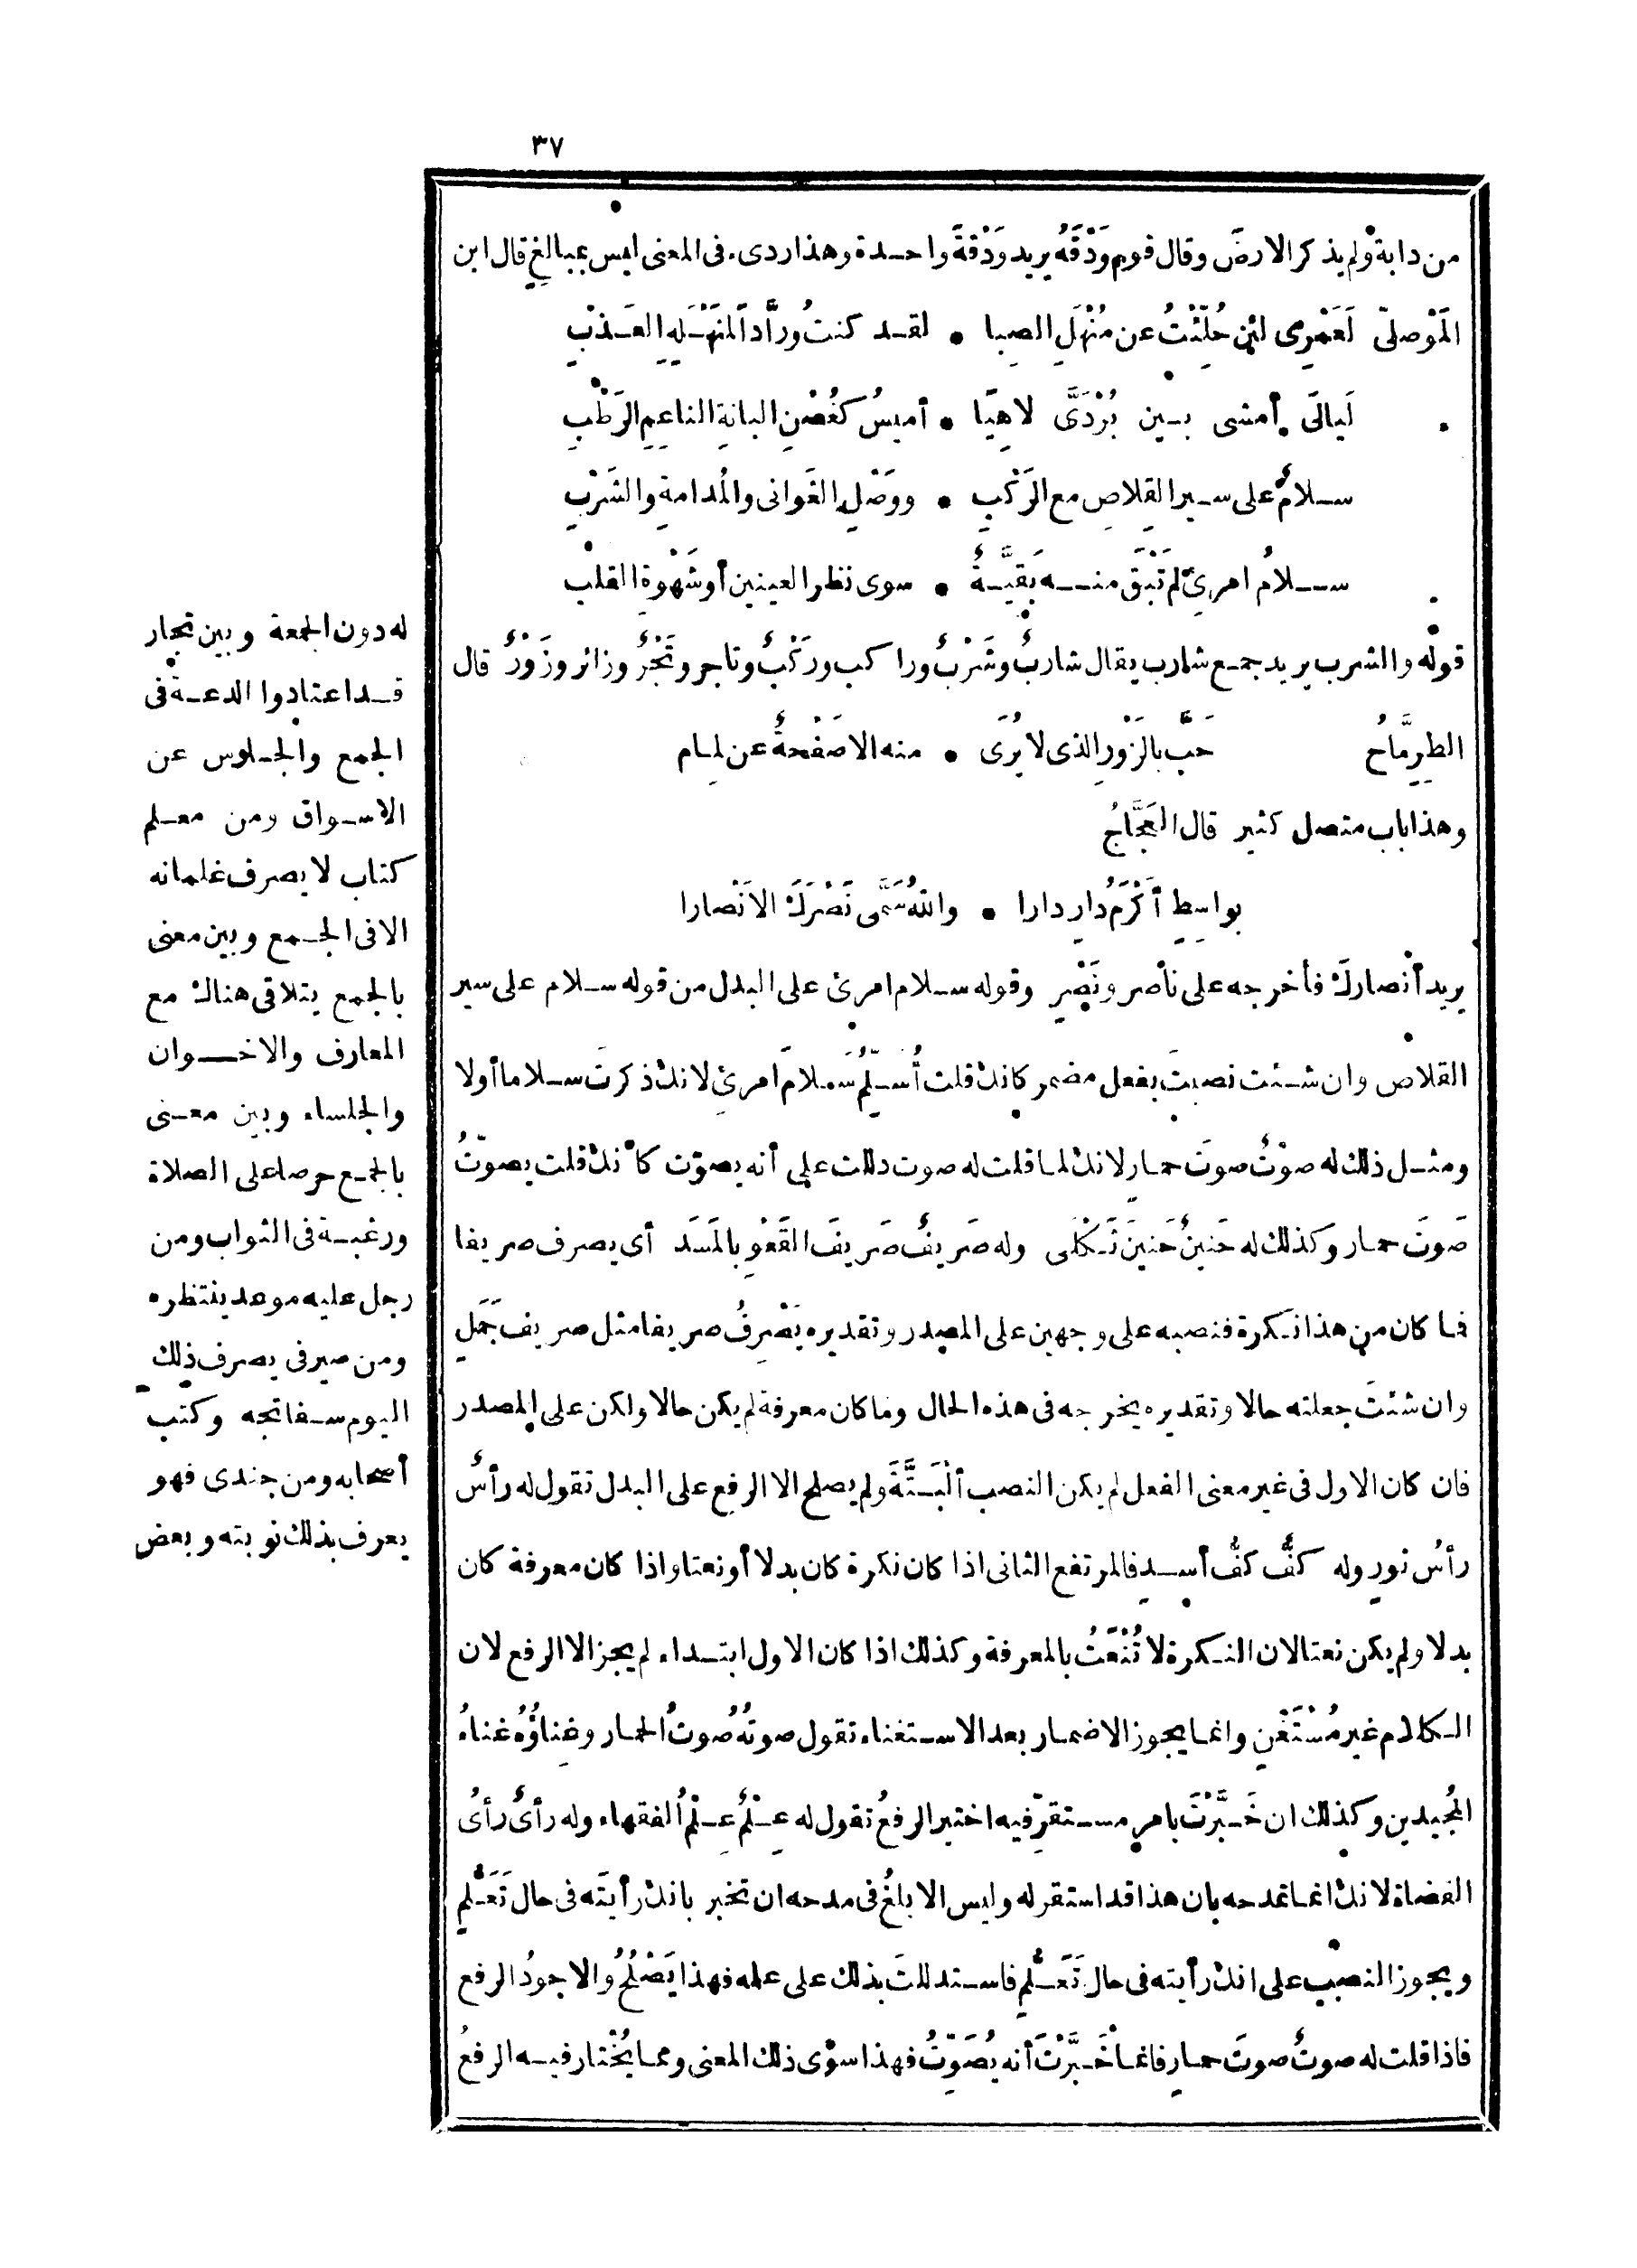 ٣٧
من دابة ولم يذكر الارضَ وقال قوم وَدْقَهُ يريد وَدْقةً واحدة وهذا ردىء فى المعنى ليس بمبالغٍ قال ابن
المَوْصلىّ لَعَمْرِى لئن حُلِّئْتُ عن مَنْهَلِ الصِبا • لقد كنتُ ورّاداً لمَنْهَلِهِ العَذْبِ
لَيالىَ أمشى بين بُرْدَىَّ لاهِيًا • أميسُ كغُصْنِ البانةِ الناعِمِ الرَطْبِ
سلامٌ على سير القِلاصِ مع الرَكْبِ • ووَصْلِ الغَوانى والمُدامةِ والشَرْبِ
سلامُ امرئٍ لم تَبْقَ منه بَقيَّةٌ • سوى نظر العينين أو شَهْوةِ القلبْ
قوله والشرب يريد جمع شارب يقال شاربٌ وشَرْبٌ وراكب ورَكْبٌ وتاجر وتَجْرٌ وزائر وزَوْرٌ قال
الطِرِمَّاحُ حَبَّ بالزَوْرِ الذى لا يُرَى • منه الا صَفْحةٌ عن لِمام
وهذا باب متصل كثير قال العَجَّاجُ
بواسِطٍ أَكْرَمُ دارٍ دارا • واللهُ سَمَّى نَصْرَكَ الاَنْصارا
يريد أنصاركَ فأخرجه على ناصر ونَصْرٍ وقوله سلام امرئ على البدل من قوله سلام على سير
القلاص وان شئت نصبتَ بفعل مضمر كانك قلت أُسَلِّمُ سَلامَ امرئٍ لانك ذكرتَ سلاما أولا
ومثل ذلك له صوْتٌ صوتَ حمارٍ لانك لما قلت له صوت دللت على أنه يصوّت كأنك قلت يصوّتُ
صَوتَ حمار وكذلك له حَنينٌ حَنينَ ثَكْلَى وله صَريفٌ صَريفَ القَعْوِ بالمَسَد أى يصرف صريفا
فما كان من هذا نكرة فنصبه على وجهين على المصدر وتقديره يَصْرِفُ صريفا مثل صريف جَمَلٍ
وان شئتَ جعلته حالا وتقديره يخرجه فى هذه الحال وما كان معرفة لم يكن حالا ولكن على المصدر
فان كان الاول فى غير معنى الفعل لم يكن النصب ألْبَتَّةَ ولم يصلح الا الرفع على البدل تقول له رأسٌ
رأسُ ثورٍ وله كفٌّ كفُّ أسدٍ فالمرتفع الثانى اذا كان نكرة كان بدلا أو نعتا واذا كان معرفة كان
بدلا ولم يكن نعتا لان النكرة لا تُنْعَتُ بالمعرفة وكذلك اذا كان الاول ابتداء لم يجز الا الرفع لان
الكلام غير مُسْتَغْنٍ وانما يجوز الاضمار بعد الاستغناء تقول صوتُهُ صوتُ الحمار وغِناؤُهُ غناءُ
المُجيدين وكذلك ان خَبَّرْتَ بامرٍ مستقرّ فيه اختير الرفعُ تقول له عِلْمٌ عِلْمُ الفقهاء وله رأىٌ رأىُ
القضاة لانك انما تمدحه بان هذا قد استقر له وليس الابلغُ فى مدحه ان تخبر بانك رأيتَه فى حال تَعَلُّمٍ
ويجوز النصب على انك رأيته فى حال تَعَلُّمٍ فاستدللتَ بذلك على علمه فهذا يَصْلُحُ والاجودُ الرفع
فاذا قلت له صوتٌ صوتَ حمارٍ فانما خَبَّرْتَ أنه يُصَوِّتُ فهذا سوَى ذلك المعنى ومما يُخْتار فيه الرفعُ
له دون الجمعة وبين تجار
قد اعتادوا الدعة فى
الجمع والجلوس عن
الاسواق ومن معلم
كتاب لا يصرف غلمانه
الا فى الجمع وبين معنى
بالجمع يتلاقى هناك مع
المعارف والاخوان
والجلساء وبين معنى
بالجمع حرصا على الصلاة
ورغبة فى الثواب ومن
رجل عليه موعد ينتظره
ومن صيرفى يصرف ذلك
اليوم سفاتجه وكتب
أصحابه ومن جندى فهو
يعرف بذلك نوبته وبعض